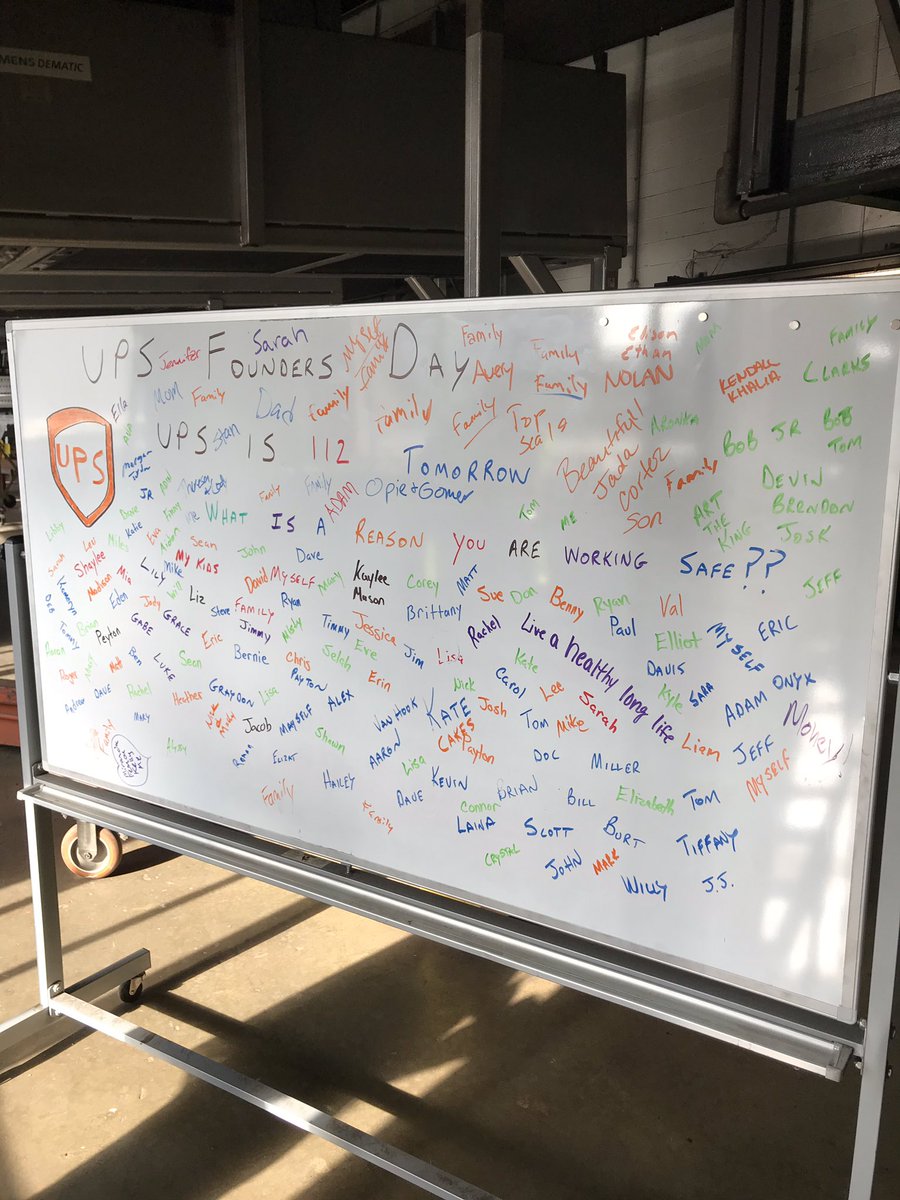 MENS DEMATIC
UPS FOUNDERS DAY
Jennifer
Sarah
MYSELF
Family
Family
Edison
Ethan
NOLAN
MOM
FAMILY
CLARKS
KENDALL
KHALIA
Ella
MOM
Family
Dad
Family
Family
Avery
Family
Family
Top
UPS
UPS IS 112
Stan
TOMORROW
Opie & Gomer
Beautiful!
Jada
Cortez
Son
Family
BOB JR
BOB
TOM
DEVIN
BRENDON
JOSR
ART
THE
KING
JR
Family
Family
ADAM
Tom
ME
WHAT IS A REASON YOU ARE WORKING SAFE??
Libby
Dave
Katie
Eva
Sean
John
Dave
Sarah
Levi
Shaylee
Miles
MY KIDS
Madison
Mia
LILY
Mike
Will
David
MYSELF
Mary
Kaylee
Mason
Corey
MATT
Sue
Don
Benny
Ryan
Val
JEFF
Eden
Jody
Liz
Steve
FAMILY
Ryan
Brittany
Paul
Elliot
MYSELF
ERIC
Tommy
Brian
Peyton
GABE
GRACE
Eric
Jimmy
Mindy
Timmy
Jessica
Rachel
Live a healthy long life
Roger
Matt
Ben
LUKE
Sean
Bernie
Chris
Eve
Jim
Lisa
Kate
DAVIS
Andrew
DAVE
Rachel
Heather
GRAYDON
Lisa
PAYTON
ALEX
Erin
Nick
Carol
Lee
Kyle
SARA
ADAM
ONYX
MARY
Jacob
MYSELF
Shawn
VAN HOOK
KATE
CAKES
Josh
Tom
Mike
Sarah
Liam
JEFF
Money!
Family
AARON
Lisa
Taylon
DOC
MILLER
MYSELF
Family
HAILEY
DAVE
KEVIN
BRIAN
BILL
Elizabeth
TOM
Family
Connor
LAINA
SCOTT
BURT
TIFFANY
CRYSTAL
JOHN
MARK
WILLY
J.S.